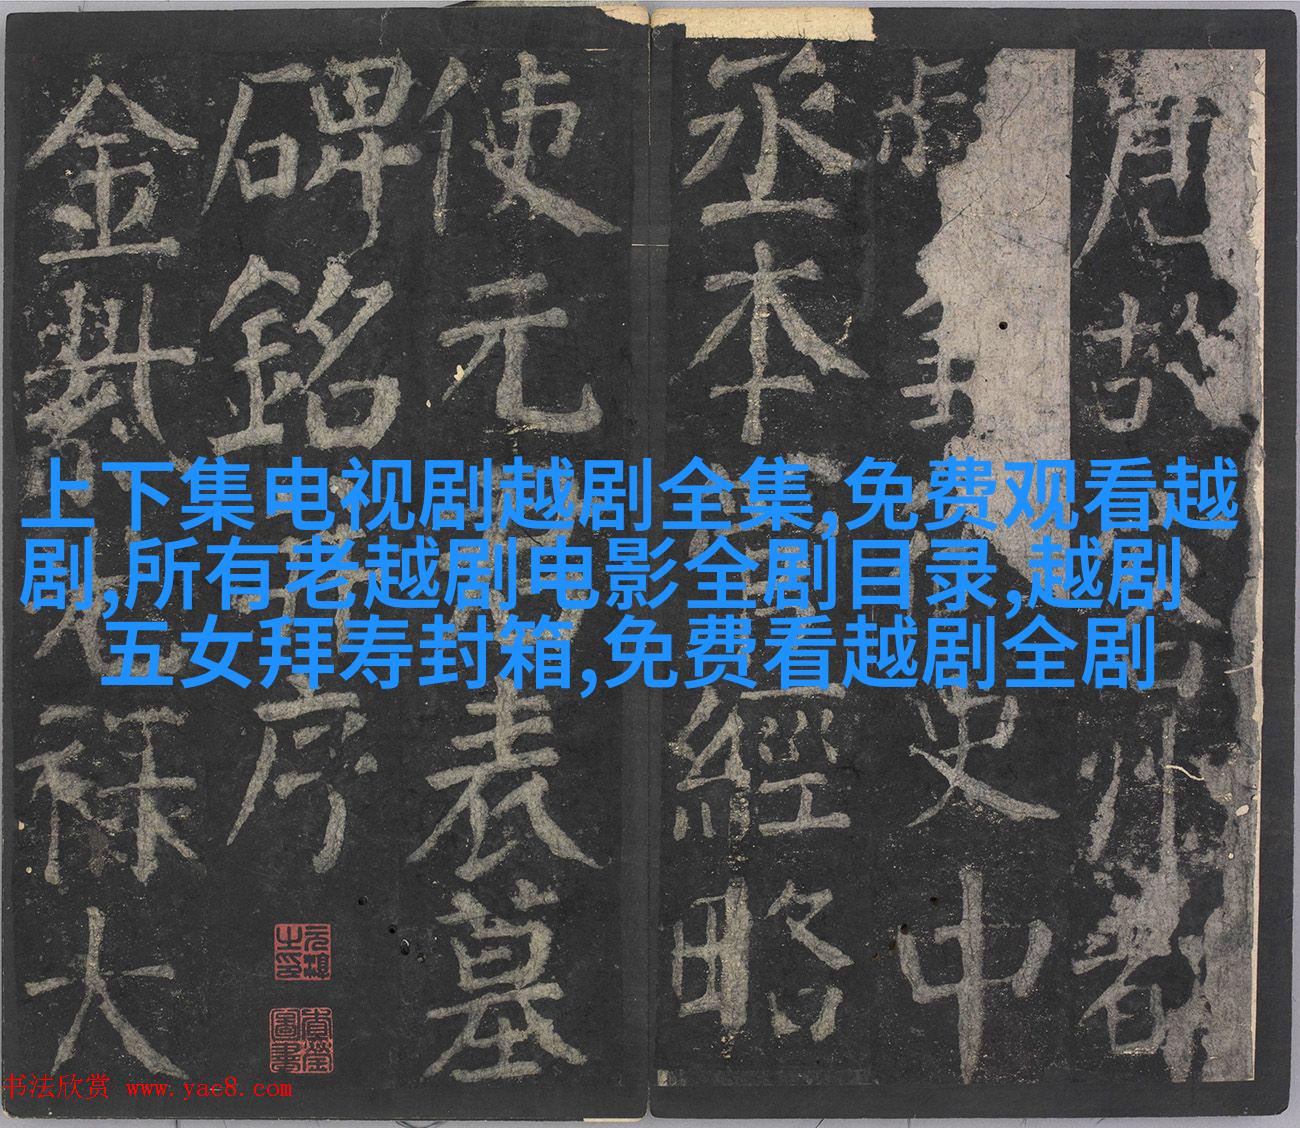 上下集电视剧越剧全集,免费观看越
剧,所有老越剧电影全剧目录,越剧
五女拜寿封箱,免费看越剧全剧
唐故容州都
史中
丞本管經略
使元君表墓
碑銘并序
金紫光祿大
书法欣赏 www.yac8.com